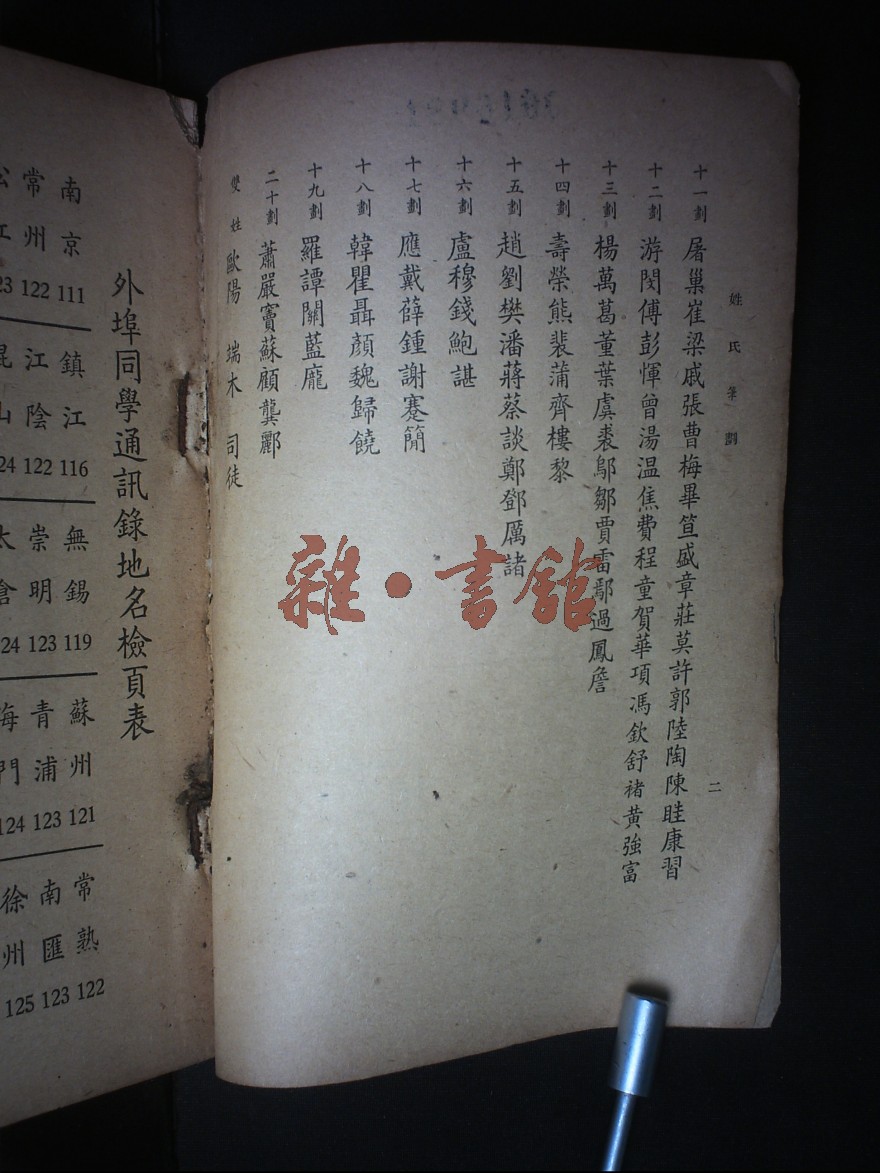 姓氏筆劃
二
十一劃 屠巢崔梁戚張曹梅畢笪盛章莊莫許郭陸陶陳眭康習
十二劃 游閔傅彭惲曾湯温焦費程童賀華項馮欽舒褚黃強富
十三劃 楊萬葛董葉虞裘鄔鄒賈雷鄢過鳳詹
十四劃 壽榮熊裴蒲齊樓黎
十五劃 趙劉樊潘蔣蔡談鄭鄧厲諸
十六劃 盧穆錢鮑諶
十七劃 應戴薛鍾謝蹇簡
十八劃 韓瞿聶顏魏歸饒
十九劃 羅譚關藍龐
二十劃 蕭嚴竇蘇顧龔酈
雙姓 歐陽 端木 司徒
外埠同學通訊錄地名檢頁表
南京 111
鎮江 116
無錫 119
蘇州 121
常熟 122
常州 122
江陰 122
崇明 123
青浦 123
南匯 123
松江 123
崑山 124
太倉 124
海門 124
徐州 125
雜·書館